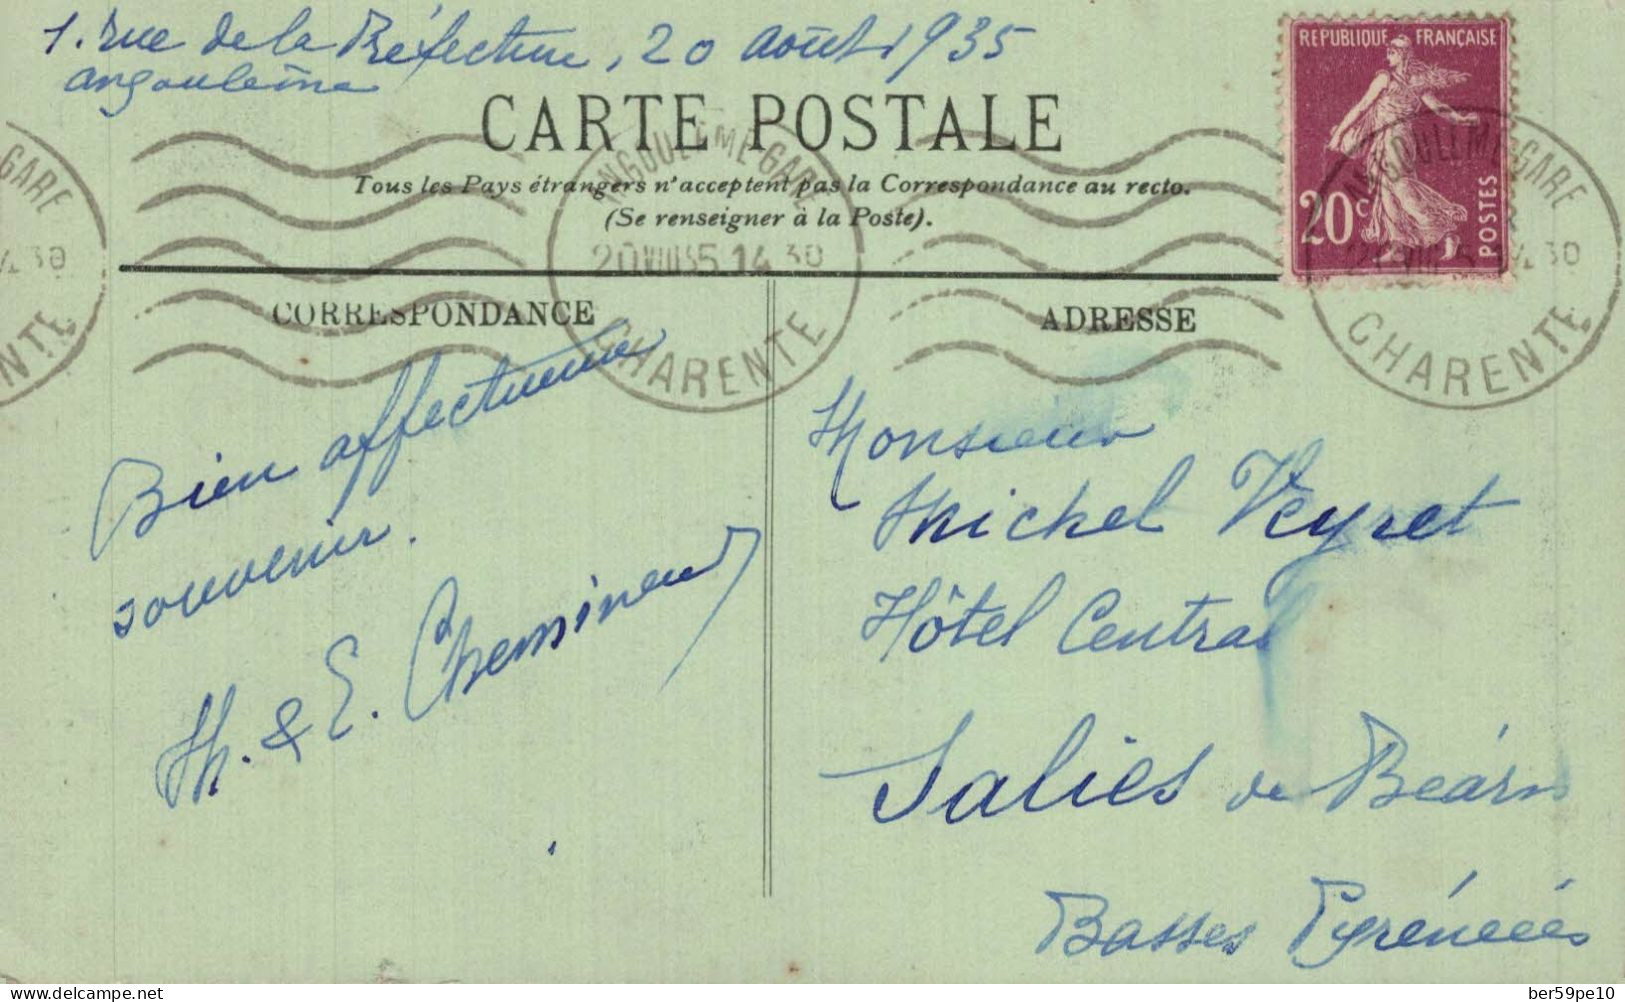 1. rue de la Préfecture, 20 août 1935
angoulême
CARTE POSTALE
Tous les Pays étrangers n'acceptent pas la Correspondance au recto.
(Se renseigner à la Poste).
REPUBLIQUE FRANÇAISE
20c
POSTES
ANGOULEME GARE
20 VIII 35 14 30
CHARENTE
ANGOULEME GARE
30
CHARENTE
GARE
30
NTE
CORRESPONDANCE
ADRESSE
Bien affectueux
souvenir.
M. & E. Chemineau
Monsieur
Michel Veyret
Hôtel Central
Salies de Béarn
Basses Pyrénées
delcampe.net
ber59pe10